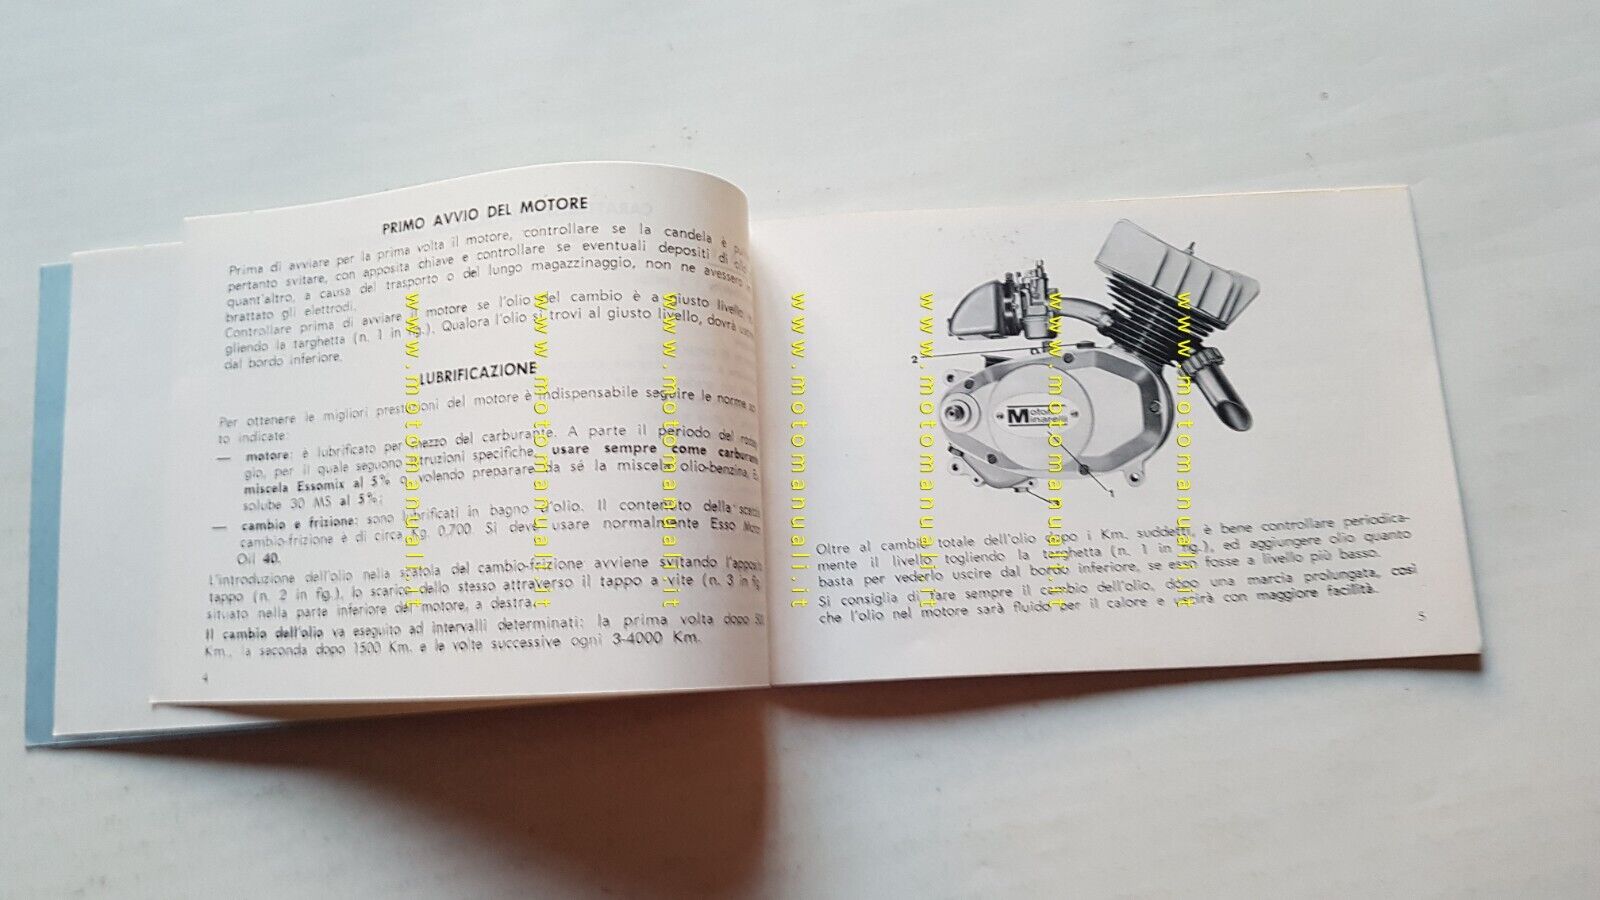 PRIMO AVVIO DEL MOTORE
Prima di avviare per la prima volta il motore, controllare se la candela è
pertanto svitare, con apposita chiave e controllare se eventuali depositi di
quant'altro, a causa del trasporto o del lungo magazzinaggio, non ne avessero
brattato gli elettrodi.
Controllare prima di avviare il motore se l'olio del cambio è a giusto livello,
gliendo la targhetta (n. 1 in fig.). Qualora l'olio si trovi al giusto livello, dovrà
dal bordo inferiore.
LUBRIFICAZIONE
Per ottenere le migliori prestazioni del motore è indispensabile seguire le norme
to indicate:
— motore: è lubrificato per mezzo del carburante. A parte il periodo del
gio, per il quale seguono istruzioni specifiche, usare sempre come
miscela Essomix al 5% o volendo preparare da sé la miscela olio-benzina,
solube 30 MS al 5%;
— cambio e frizione: sono lubrificati in bagno d'olio. Il contenuto della
cambio-frizione è di circa Kg. 0,700. Si deve usare normalmente Esso Motor
Oil 40.
L'introduzione dell'olio nella scatola del cambio-frizione avviene svitando l'apposito
tappo (n. 2 in fig.), lo scarico dello stesso attraverso il tappo a vite (n. 3 in fig.
situato nella parte inferiore del motore, a destra.
Il cambio dell'olio va eseguito ad intervalli determinati: la prima volta dopo
Km., la seconda dopo 1500 Km. e le volte successive ogni 3-4000 Km.
4
2
Motori
Minarelli
1
Oltre al cambio totale dell'olio dopo i Km. suddetti, è bene controllare periodica-
mente il livello togliendo la targhetta (n. 1 in fig.), ed aggiungere olio quanto
basta per vederlo uscire dal bordo inferiore, se esso fosse a livello più basso.
Si consiglia di fare sempre il cambio dell'olio, dopo una marcia prolungata, così
che l'olio nel motore sarà fluido per il calore e uscirà con maggiore facilità.
5
www.motomanuali.it
www.motomanuali.it
www.motomanuali.it
www.motomanuali.it
www.motomanuali.it
www.motomanuali.it
www.motomanuali.it